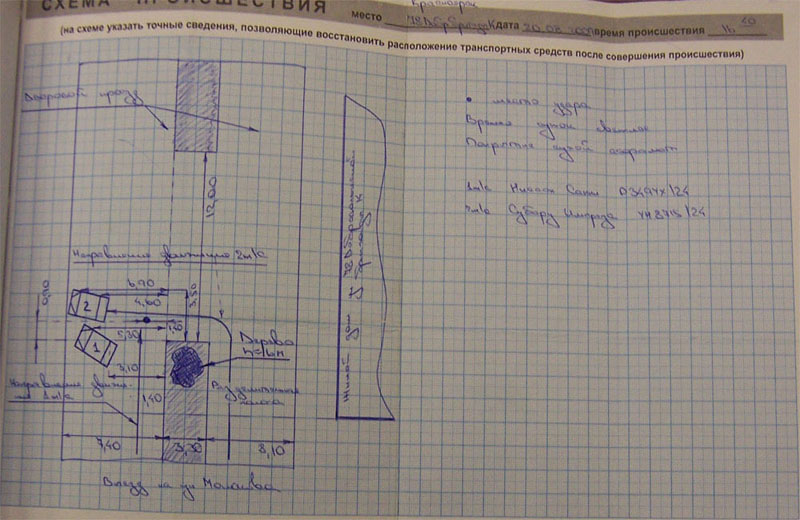 СХЕМА ПРОИСШЕСТВИЯ
Красноярск
место 78 Добр. бригады К дата 20.08 время происшествия 16 20
(на схеме указать точные сведения, позволяющие восстановить расположение транспортных средств после совершения происшествия)
Дворовой проезд
12,00
• место удара
Время суток светлое
Покрытие сухой асфальт
1 т/с Ниссан Санни О349УХ/24
2 т/с Субару Импреза
Жилой дом 78 Добровольческой бригады К
Направление движения 2 т/с
6,90
4,60
3,50
0,90
2
5,30
1
3,10
1,40
Дерево
h=4м
Направление движения 1 т/с
Разделительная полоса
7,40
3,30
8,10
Выезд на ул Молокова